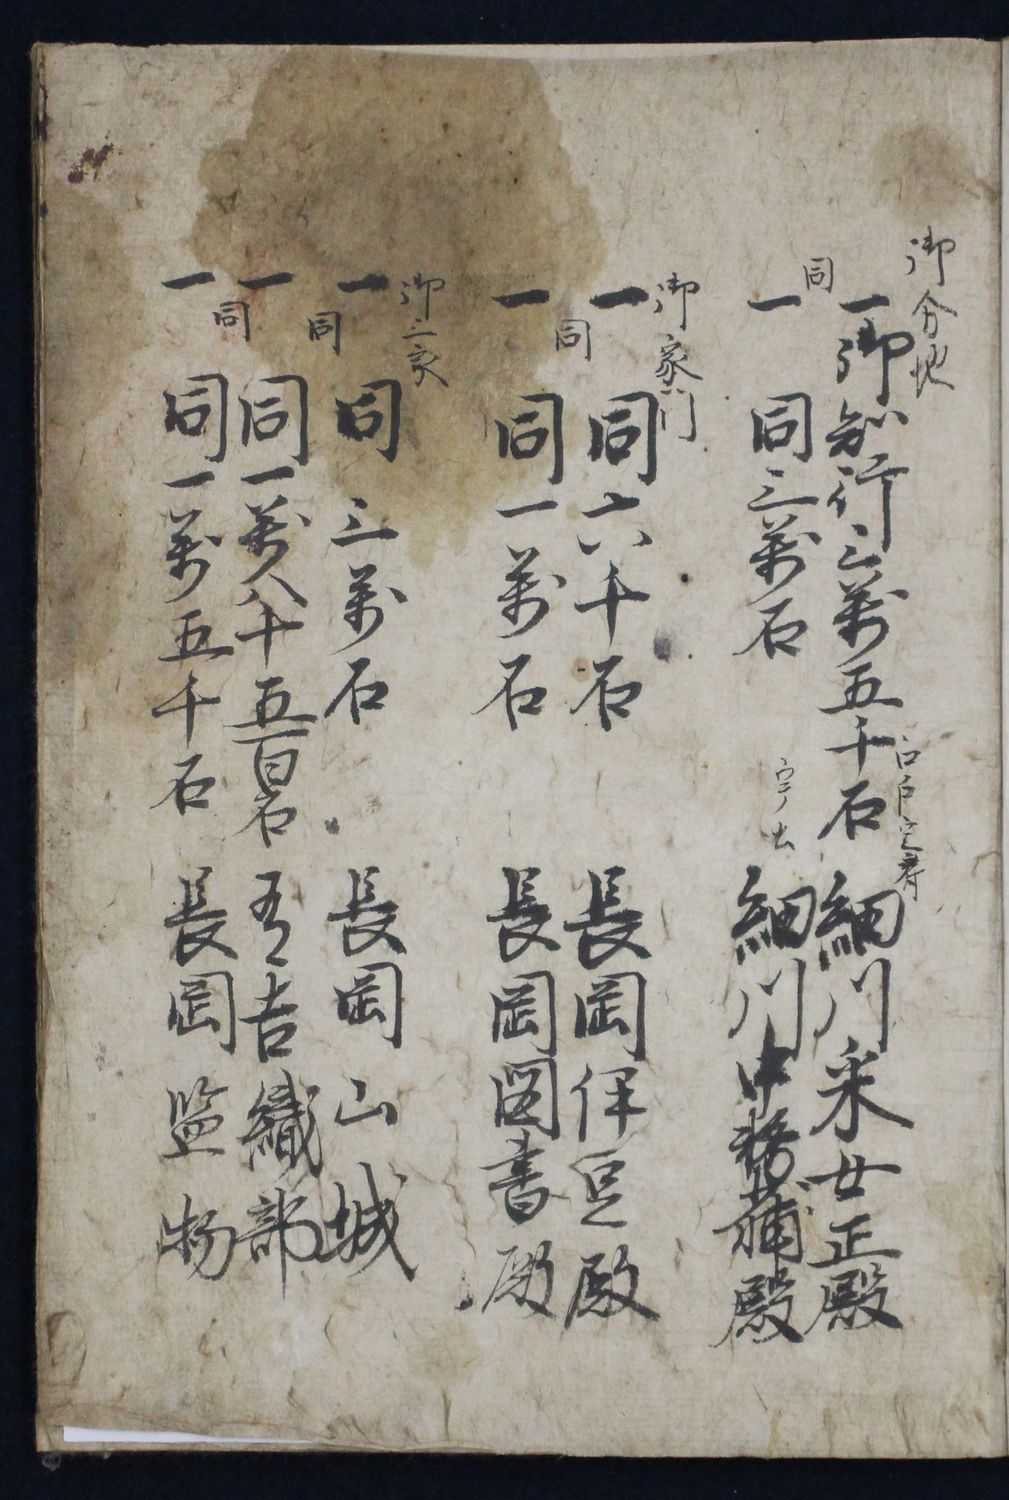 御分地
一御知行三萬五千石 江戸定府 細川采女正殿
同
一 同三萬石 宇土 細川中務輔殿
御家門
一 同六千石 長岡伊豆殿
同
一 同一萬石 長岡図書殿
御三家
一 同 三萬石 長岡山城
同
一 同一萬八千五百石 有吉織部
同
一 同一萬五千石 長岡監物